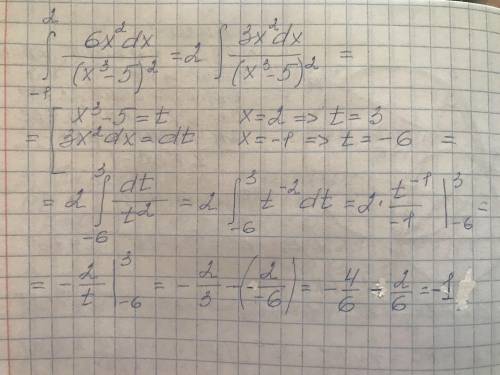 ∫_{-1}^{2} 6x²dx/(x³-5)² = 2 ∫ 3x²dx/(x³-5)² =
= [ x³-5=t x=2 => t=3
3x²dx=dt x=-1 => t=-6 =
= 2 ∫_{-6}^{3} dt/t² = 2 ∫_{-6}^{3} t⁻² dt = 2· t⁻¹/-1 |_{-6}^{3} =
= - 2/t |_{-6}^{3} = - 2/3 - (- 2/-6) = - 4/6 - 2/6 = -1